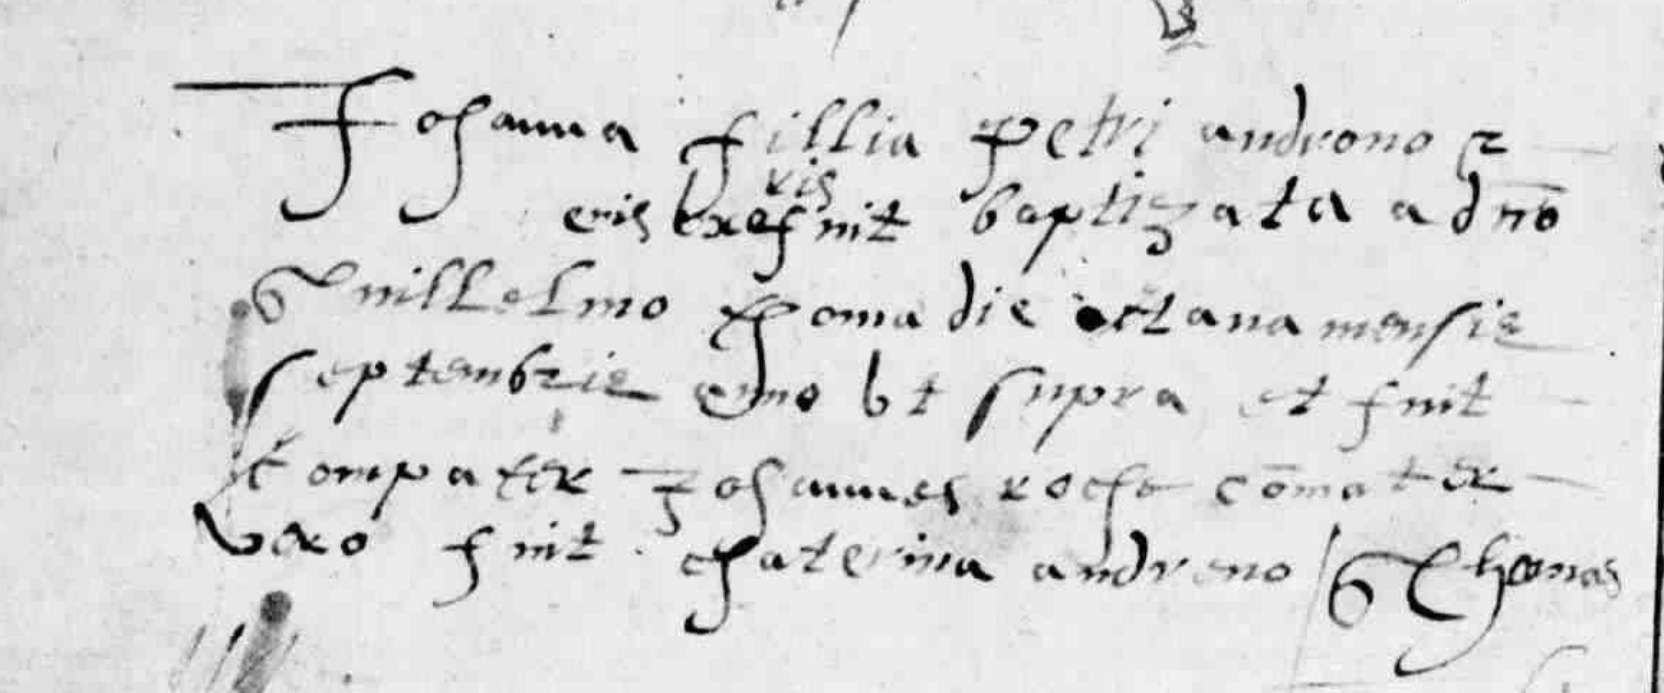 Johanna fillia petri androno et
eius vxoris fuit baptizata a dno
Guillelmo Thoma die octaua mensis
septembris anno vt supra et fuit
Compater Johannes roche comater
vero fuit chaterina andreno G Thomas